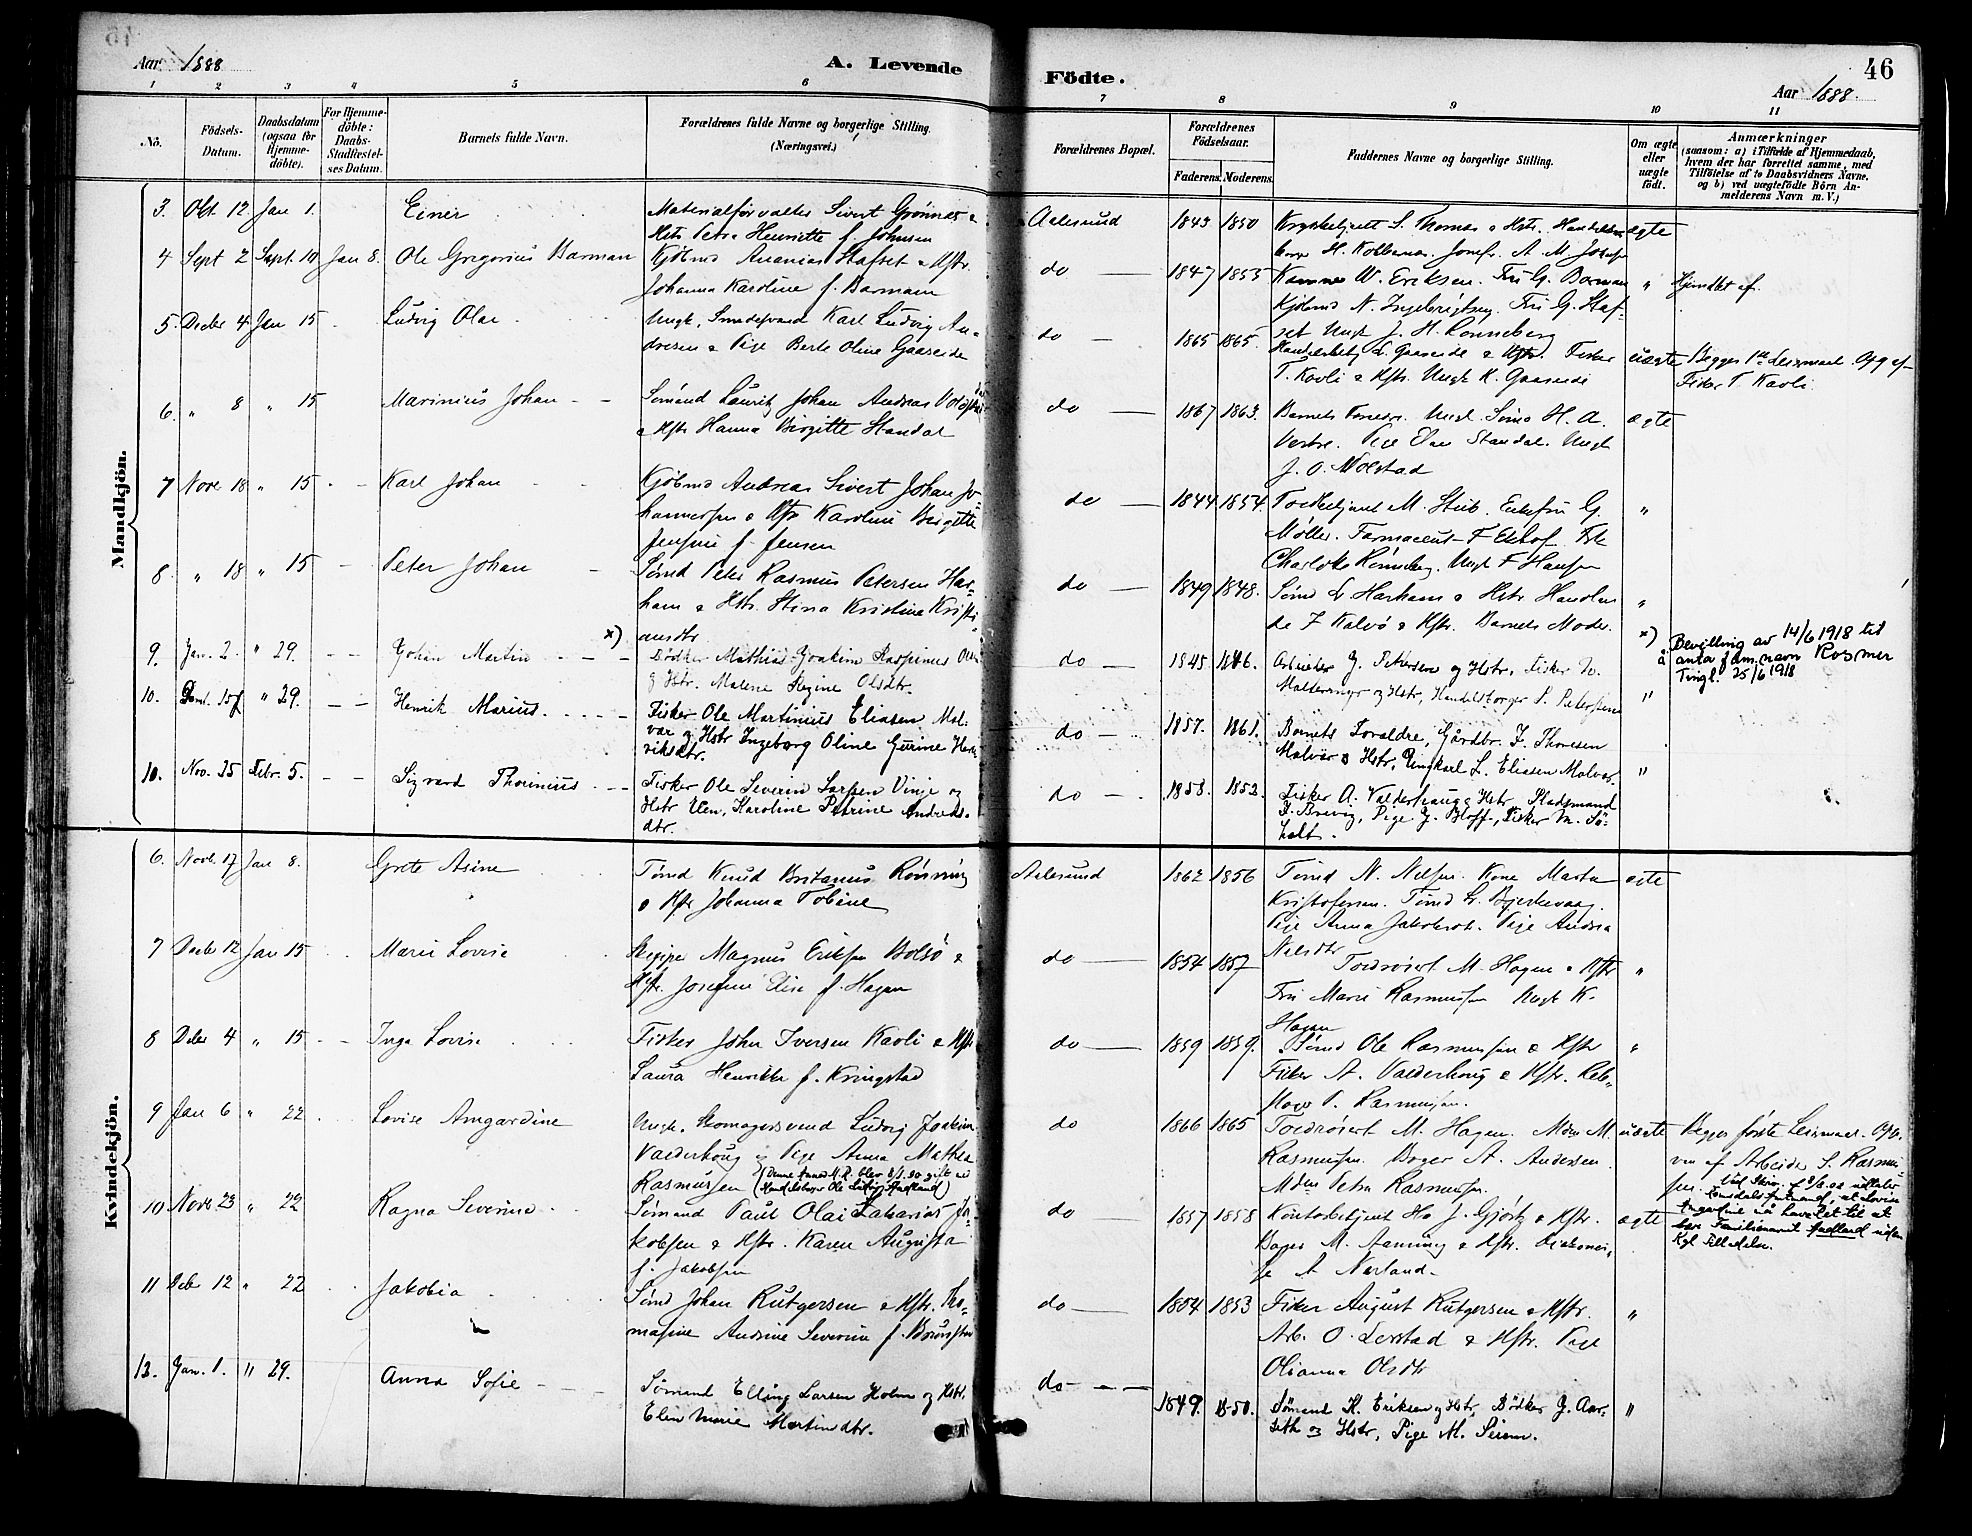 Aar 1888
A. Levende
Födte.
Aar 1888.
46
1 2 3 4 5 6 7 8 9 10 11
No.
Födsels-Datum.
Daabsdatum (ogsaa for Hjemmedöbte).
For Hjemmedöbte: Daabs-Stadfæstelses Datum.
Barnets fulde Navn.
Forældrenes fulde Navne og borgerlige Stilling. (Næringsvei.)
Forældrenes Bopæl.
Forældrenes Födselsaar.
Faderens. Moderens.
Faddernes Navne og borgerlige Stilling.
Om ægte eller uægte födt.
Anmærkninger
(saasom: a) i Tilfælde af Hjemmedaab, hvem der har forrettet samme, med Tilföielse af to Daabsvidners Navne, og b) ved uægtefödte Börn Anmelderens Navn m. V.)
Mandkjön.
3. Okt. 12 Jan 1. Einer Materialforvalter Sivert Grønnes &
Hstr Petra Henriette f. Johnsen
Aalesund 1843 1850
ægte
4 Sept 2 Sept. 14 Jan 8. Ole Gregorius Barman Kjøbmd Ananias Stafset & Hstr
Johanna Karoline f. Barmann
do 1847 1853 W. Eriksen. Fru G. Barman " Hjemdbt af.
Kjøbmd N. Ingebrigtsen. Fru G. Staf-
set Ungk J. H. Rønneberg
5. Decbr 4. Jan 15 Ludvig Olai Ungk. Smedesvend Karl Ludvig An-
dresen & Pige Berte Oline Gaaseide
do 1865 1865. L. Gaaseide & Hstr. Fisker
T. Kavli & Hstr. Ungk K. Gaaseide
uægte Begges 1ste Leiermaal. Opg af
Fisker T. Kavli.
6. " 8 " 15 Marinius Johan Sømand Lauritz Johan Andreas
& Hstr Hanna Birgitte Standal
do 1867 1863. Barnets Ungk. H. A.
Pige Standal. Ungk
J. O. Molstad
ægte
7 Novr 18 " 15 Karl Johan Kjøbmd Andreas Sivert Johan Jo-
hannessen & Hstr Karoline Birgitte
f. Jensen
do 1844 1854. Toldbetjent M. Stub. Enkefru G.
Møller. Farmaceut F
Charlotte Rønneberg. Ungk F Hansen
"
8. " 18 " 15 Peter Johan Sømd Peter Rasmus Petersen Har-
ham & Hstr. Stina Kristine Kristi-
ansdtr.
do 1849 1848. Sømd L Harham & Hstr
F Kalvø & Hstr. Barnets Moder.
"
9. Jan. 2 " 29. Johan Martin x) Bødker Mathias Joakim Olsen
& Hstr. Malene Regine Olsdtr.
do 1845 1846. Arbeider J. Pettersen og Hstr, Fisker
og Hstr, Handelsborger P. Petersen
"
x) Bevilling av 14/6 1918 til
å anta fam.navn Rosmer
Tingl. 25/6 1918
10. 15 " 29. Henrik Marius. Fisker Ole Martinius Eliasen Mol-
vær og Hstr Ingeborg Oline Gurine Hen-
riksdtr.
do 1857. 1861. Barnets Forældre, Gårdbr. I. Thoresen
Molvær & Hstr, Ungkarl L. Eliasen Molvær
"
10. Nov. 25 Febr. 5. Sigvard Thorinius Fisker Ole Severin Larssen Vinje og
Hstr Elen Karoline Petrine Andreas-
dtr.
do 1853. 1852. Fisker A. Valderhaug & Hstr, Pladsmand
I. Brevig, Pige J. Fisker M. Sö-
holt.
Kvindekjön.
6. Novb. 17 Jan 8. Grete Asine Tømd Knud Britanus Rønning
& Hstr Johanna Tobine
Aalesund 1862 1856 Tømd N. Nilsen. Kone Marta
Kristofersen. Tømd L. Bjerkevaag.
Pige Anna Jakobsdtr. Pige Andrea
Nilsdtr
ægte
7 Decbr 12 Jan 15 Marie Lovise Skipper Magnus Eriksen Bolsø &
Hstr. Josefine Elise f. Hagen
do 1854 1857 M. Hagen & Hstr
Fru Marie Rasmussen Ungk K.
Hagen
"
8 Debr 4 " 15 Inga Lovise Fisker John Iversen Kavli & Hstr
Laura Henrikke f. Kringstad
do 1859 1859. Sømd Ole Rasmussen & Hstr
Fisker A. Valderhoug & Hstr. Reb-
P. Rasmussen.
"
9 Jan 6 " 22 Lovise Amgardine Ungk. Skomagersvend Ludvig Joakim
Valderhoug & Pige Anna Mathea
Rasmussen (Denne Anna M. R. blev gift m
Handelsborger Ole Ludvig Audland)
do 1866 1865 M. Hagen. Mdm M.
Rasmussen. Bager A. Andersen
Mdm Petra Rasmussen.
uægte Begges første Leiermaal. Opgi-
ven af Arbeider S. Rasmus-
sen. Ved Skriv. udtaler
Romsdals Amtmand, at Lovise
Amgardine må have let til at
bære Familienavnet Audland uden
Kgl Tilladelse.
10 Novbr 23 " 22 Ragna Severine Sømand Paul Olai Zakarias Ja-
kobsen & Hstr. Karen Augusta
f. Jakobsen
do 1857 1858 Kontorbetjent J. Gjørtz & Hstr.
Bager M. Aanning & Hstr. Diakonis-
se A Nørland.
ægte
11 Debr 12 " 22 Jakobia Sømd Johan Rutgersen & Hstr. Tho-
masine Andrine Severine f.
do 1854 1853 Fisker August Rutgersen & Hstr.
Arb. O. Lerstad & Hstr. Pige
Olianna Olsdtr
"
12. Jan. 1. " 29. Anna Sofie Sømand Elling Larsen Holm og Hstr.
Elen Marie Martinsdtr.
do 1849. 1850. Sømand K. Eriksen og Hstr, Bødker J. Aar-
seth og Hstr, Pige M.
"